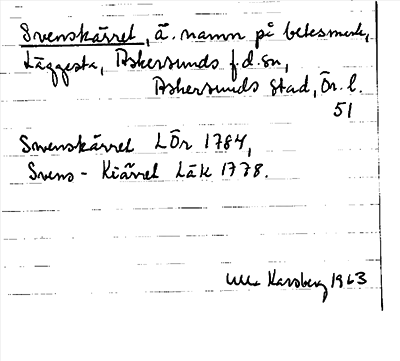 Svenskärret, ä. namn på betesmark,
Läggesta, Askersunds f.d. sn,
Askersunds stad, Ör. l.
51
Svenskärret LÖr 1784,
Svens-Kiärret Läk 1778.
Karsberg 1963